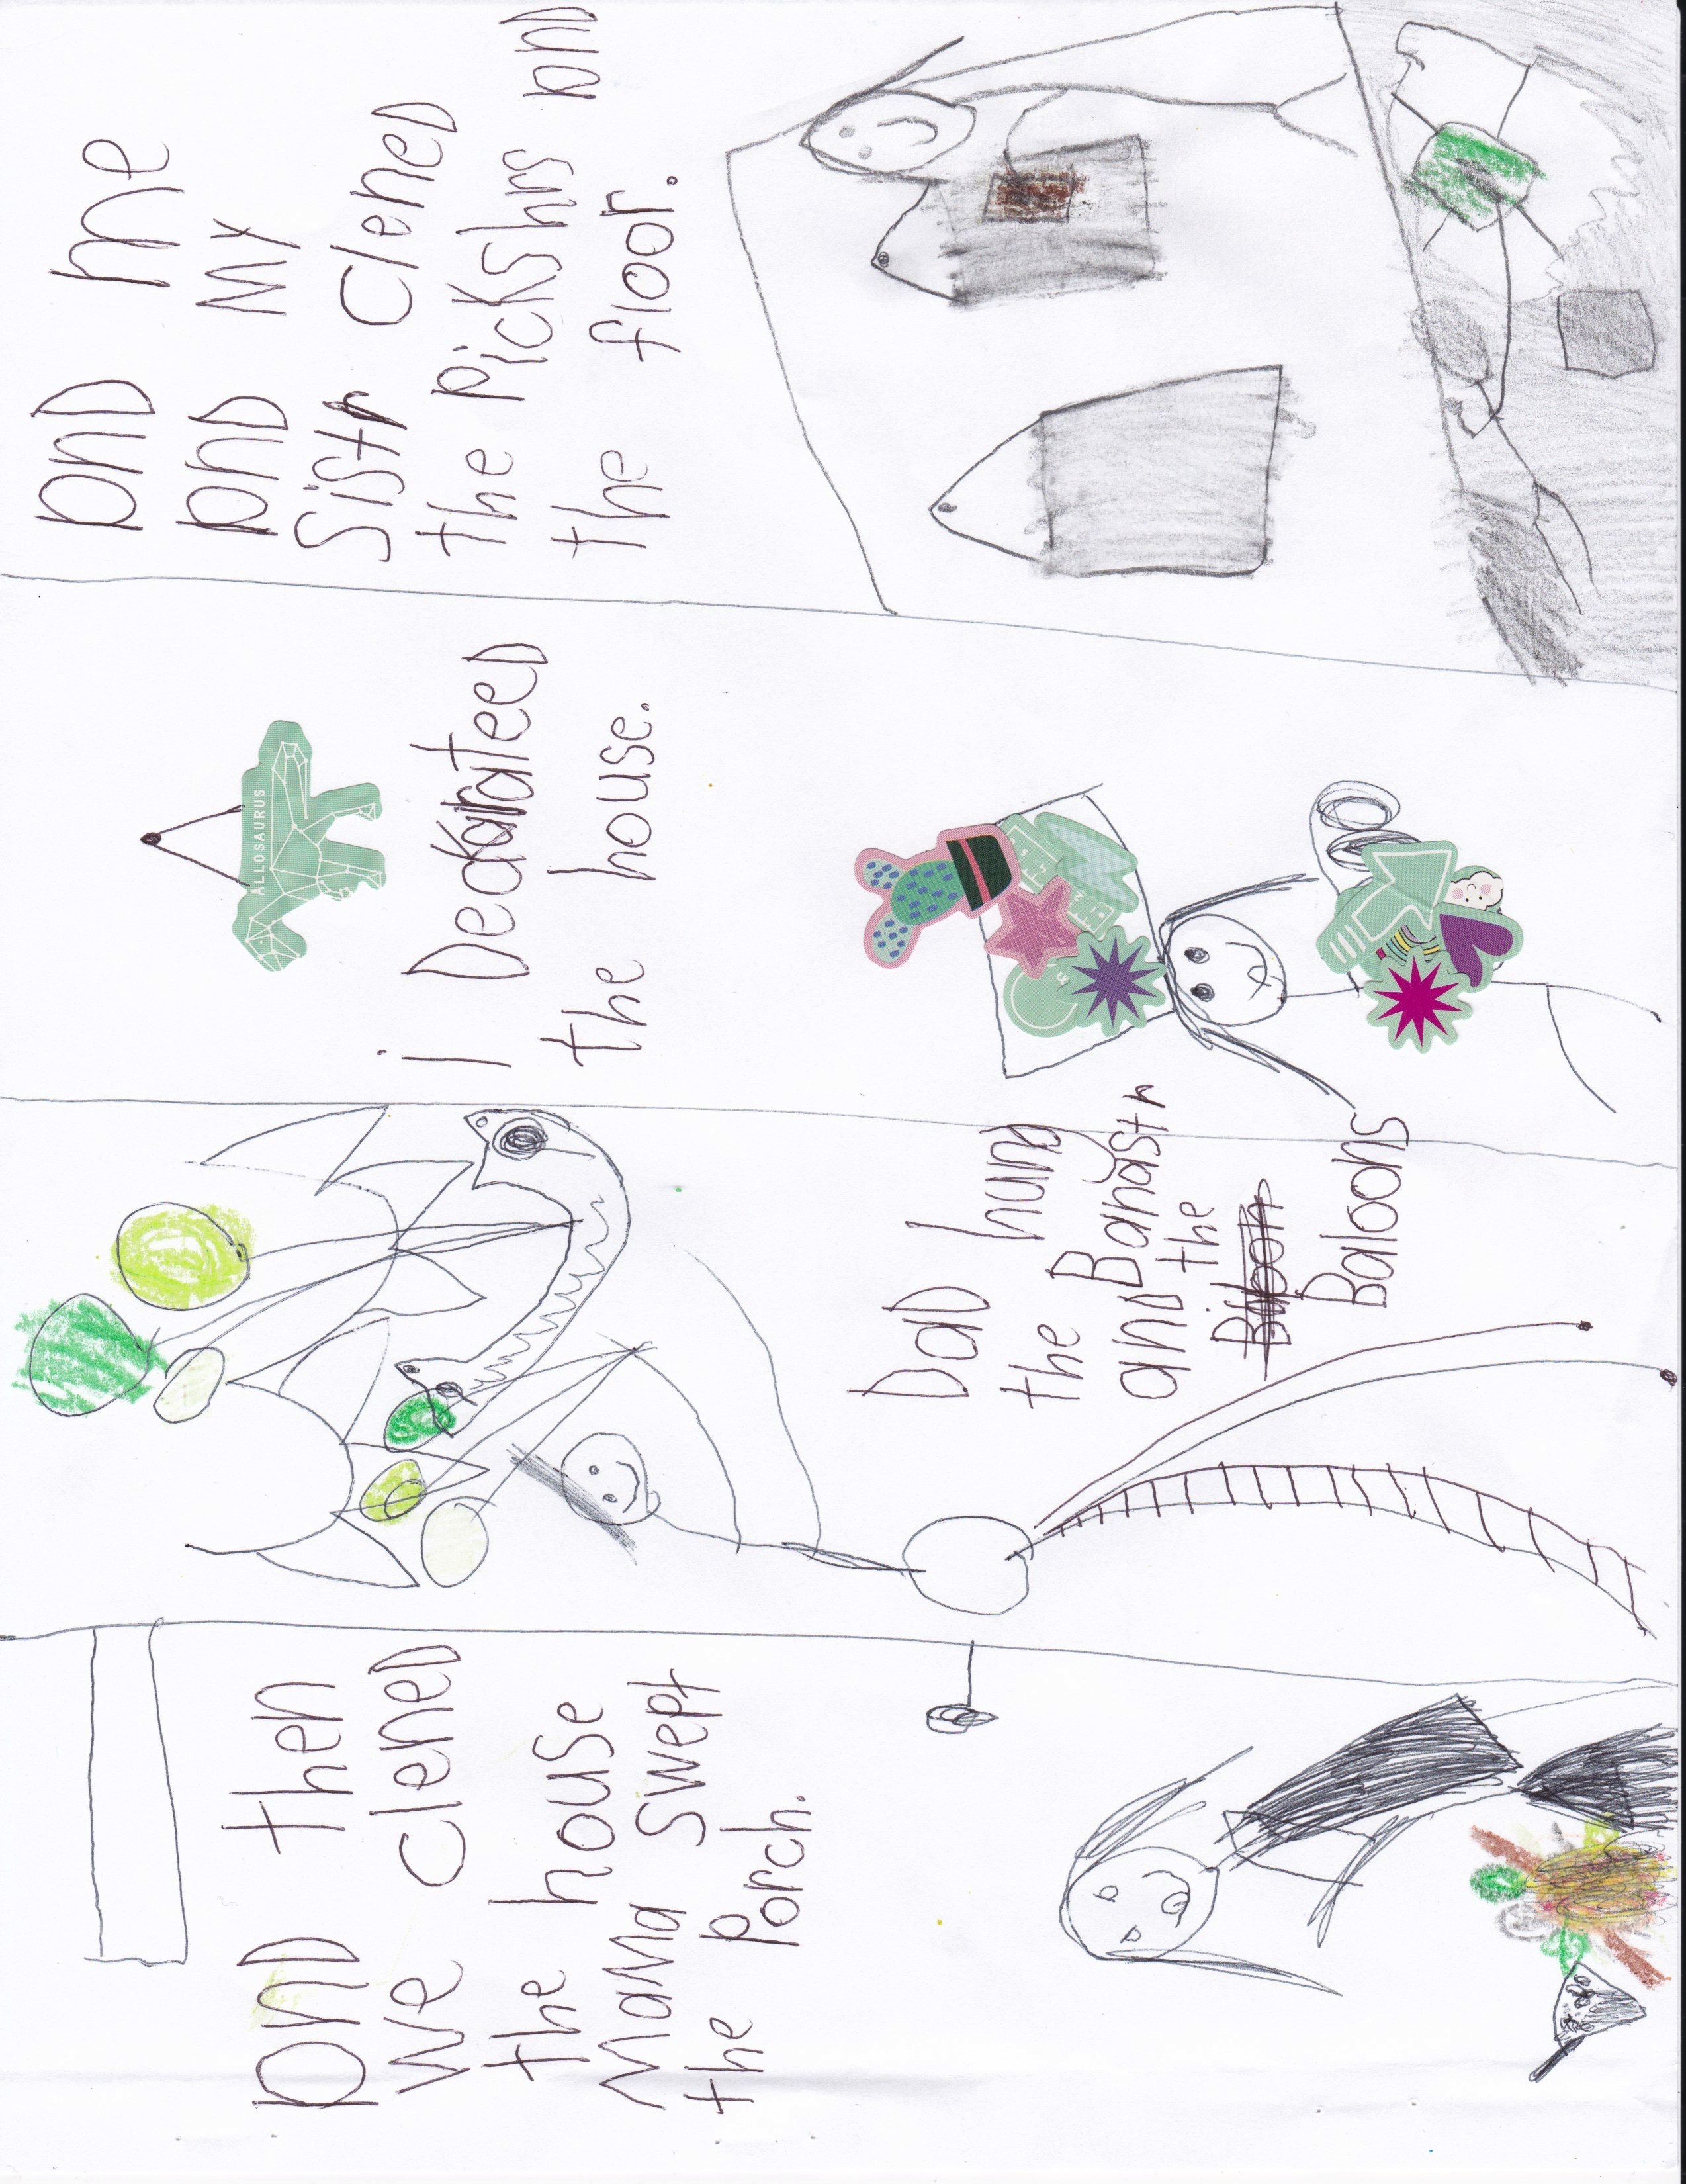 and then
we clened
the house
Mama swept
the Porch.
Dad hung
the Banastr
and the
Baloons
ALLOSAURUS
i Deckarateed
the house.
and me
and My
Sistr Clened
the Pickshrs and
the floor.